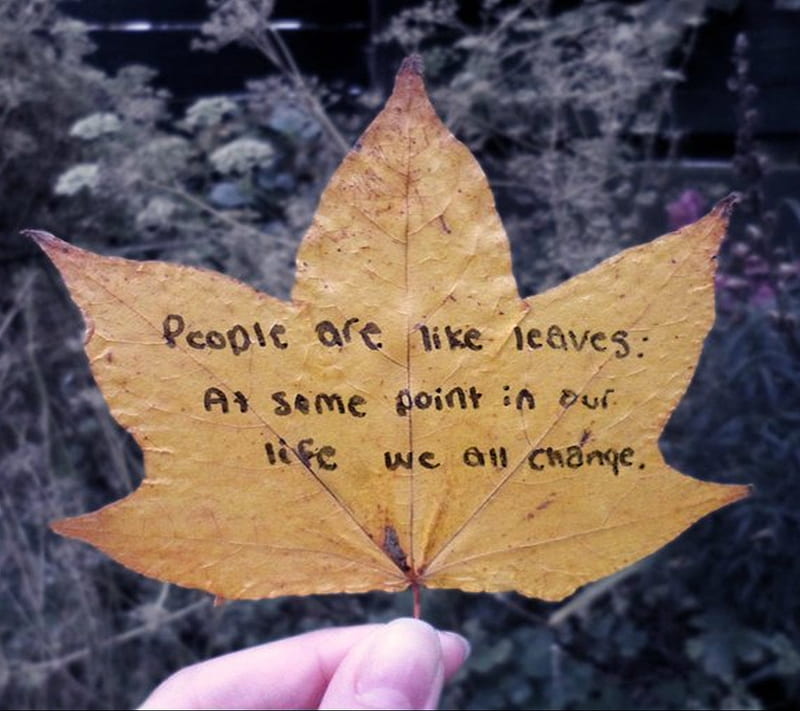 People are like leaves:
At some point in our
life we all change.